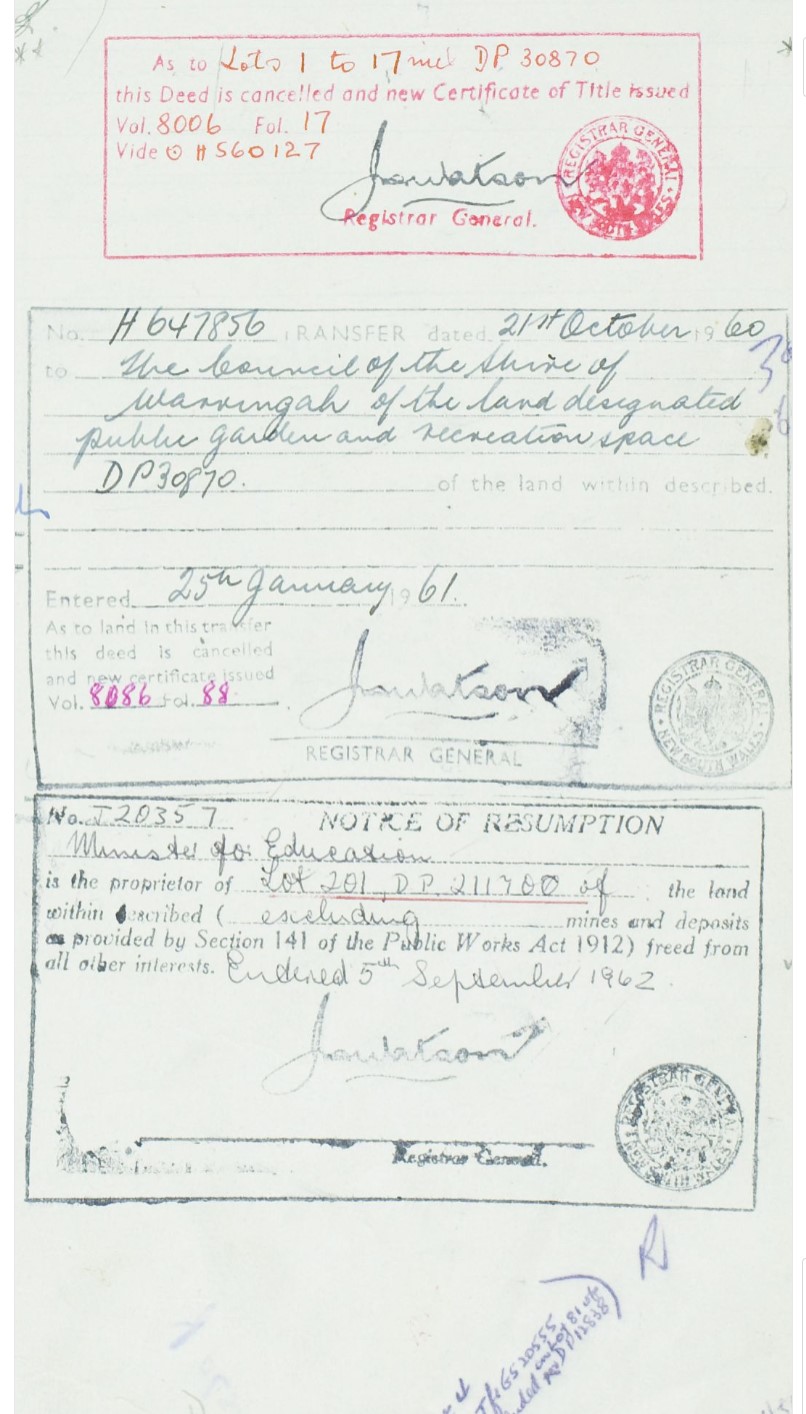 As to Lots 1 to 17 incl DP 30870
this Deed is cancelled and new Certificate of Title issued
Vol. 8006 Fol. 17
Vide ⊙ H560127
Jawatson
Registrar General.
REGISTRAR GENERAL
NEW SOUTH WALES
No. H647856 TRANSFER dated 21st October 1960
to The Council of the Shire of
Warringah of the land designated
public garden and recreation space
DP30870. of the land within described.
Entered 25th January 1961.
As to land in this transfer
this deed is cancelled
and new certificate issued
Vol. 8086 Fol. 88
Jawatson
REGISTRAR GENERAL
REGISTRAR GENERAL
NEW SOUTH WALES
No. I20357 NOTICE OF RESUMPTION
Minister for Education
is the proprietor of Lot 201 D.P. 211700 of the land
within described ( excluding mines and deposits
as provided by Section 141 of the Public Works Act 1912) freed from
all other interests. Entered 5th September 1962.
Jawatson
Registrar General.
REGISTRAR GENERAL
NEW SOUTH WALES